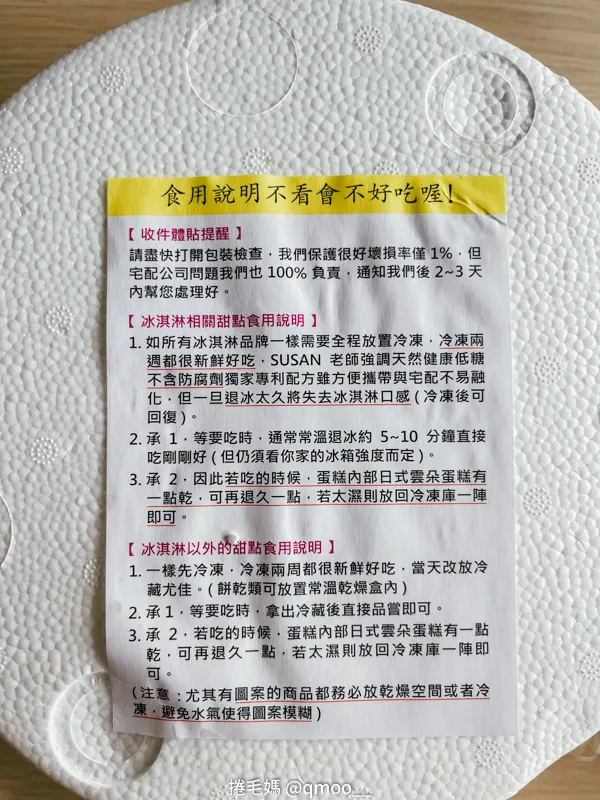 食用說明不看會不好吃喔!
【 收件體貼提醒 】
請盡快打開包裝檢查，我們保護很好壞損率僅 1%，但
宅配公司問題我們也 100% 負責，通知我們後 2~3 天
內幫您處理好。
【 冰淇淋相關甜點食用說明 】
1. 如所有冰淇淋品牌一樣需要全程放置冷凍，冷凍兩
週都很新鮮好吃，SUSAN 老師強調天然健康低糖
不含防腐劑獨家專利配方雖方便攜帶與宅配不易融
化，但一旦退冰太久將失去冰淇淋口感 ( 冷凍後可
回復 )。
2. 承 1，等要吃時，通常常溫退冰約 5~10 分鐘直接
吃剛剛好 ( 但仍須看你家的冰箱強度而定 )。
3. 承 2，因此若吃的時候，蛋糕內部日式雲朵蛋糕有
一點乾，可再退久一點，若太濕則放回冷凍庫一陣
即可。
【 冰淇淋以外的甜點食用說明 】
1. 一樣先冷凍，冷凍兩周都很新鮮好吃，當天改放冷
藏尤佳。( 餅乾類可放置常溫乾燥盒內 )
2. 承 1，等要吃時，拿出冷藏後直接品嘗即可。
3. 承 2，若吃的時候，蛋糕內部日式雲朵蛋糕有一點
乾，可再退久一點，若太濕則放回冷凍庫一陣即
可。
( 注意 : 尤其有圖案的商品都務必放乾燥空間或者冷
凍，避免水氣使得圖案模糊 )
捲毛媽 @qmoo__